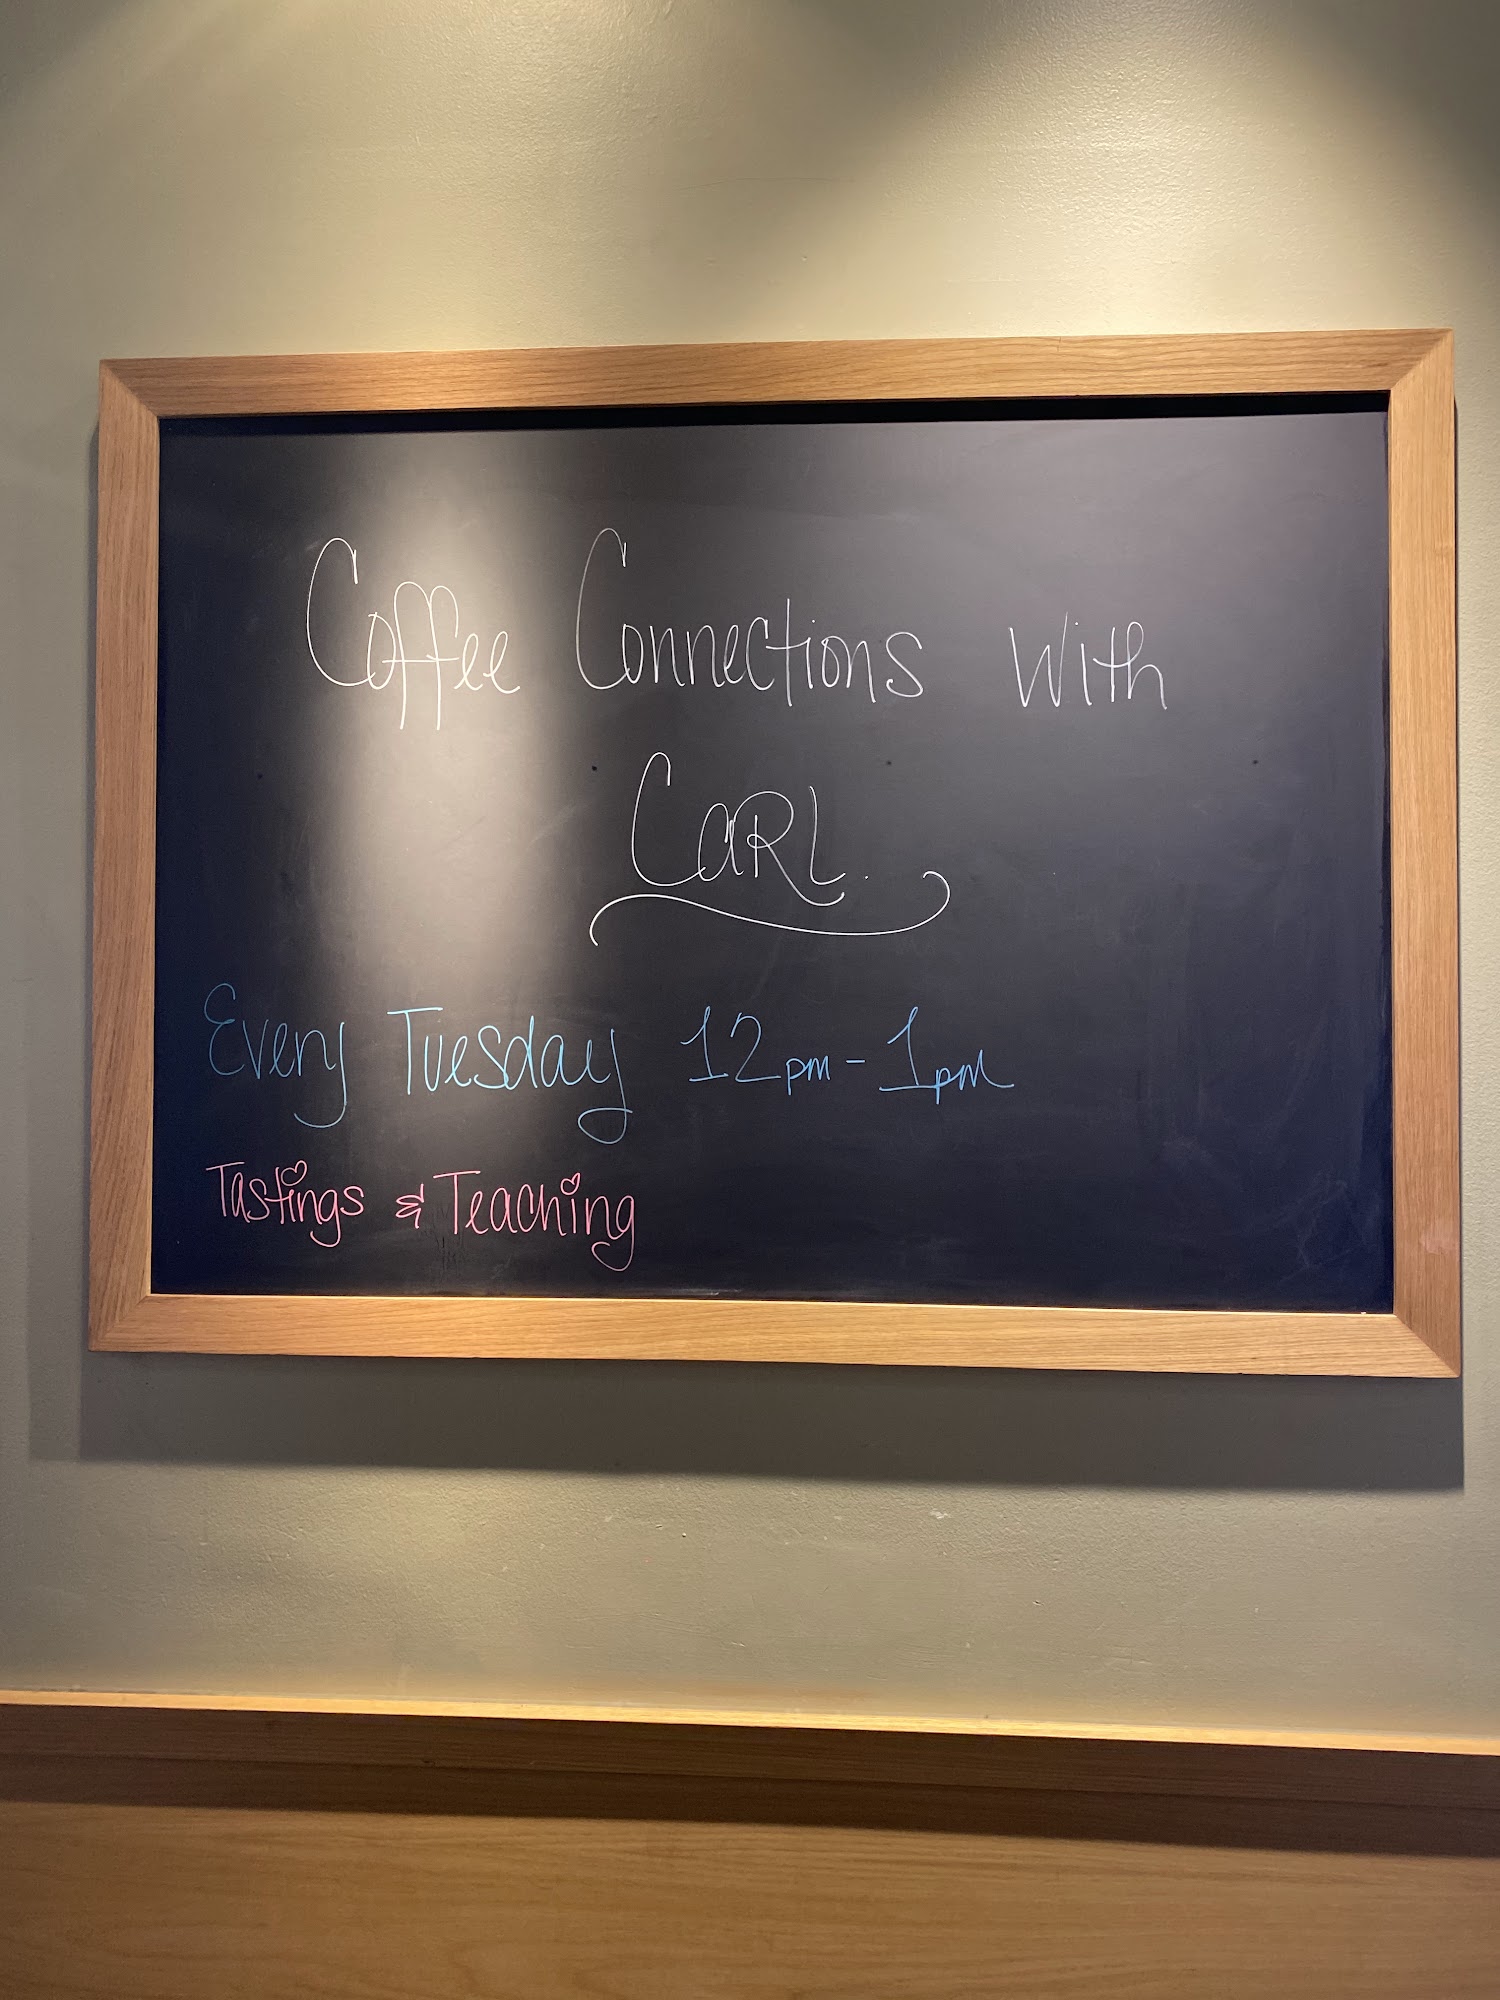 Coffee Connections With
CaRL.
Every Tuesday 12pm - 1pm
Tastings & Teaching